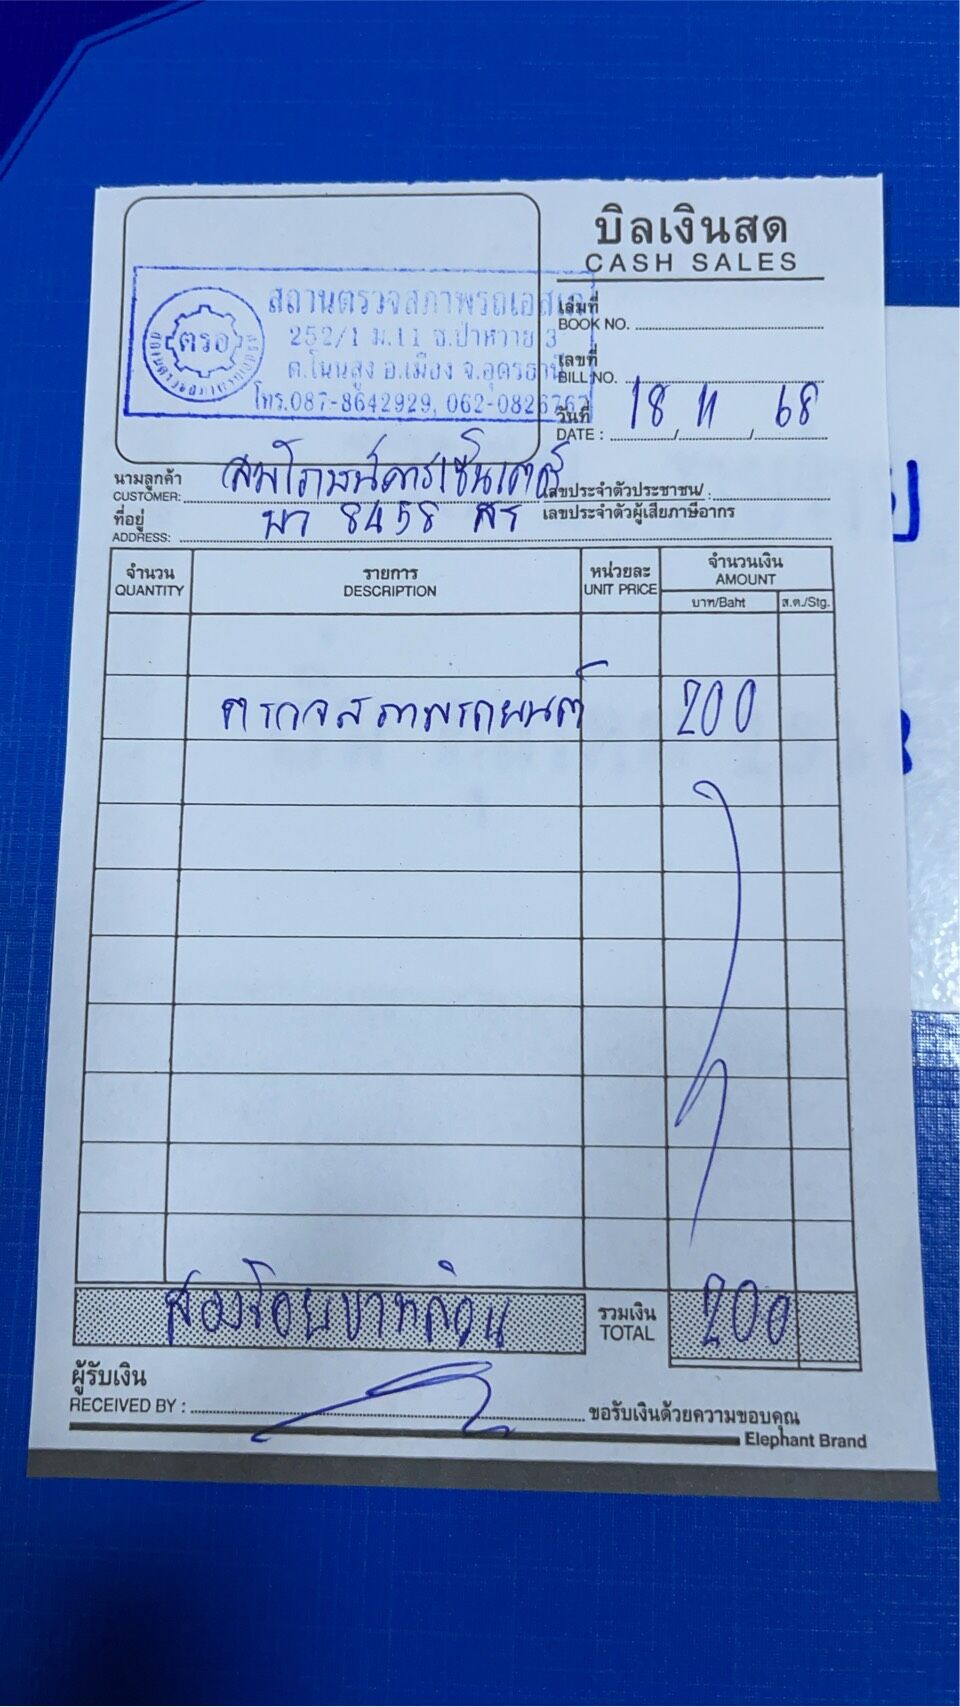 บิลเงินสด
CASH SALES
สถานตรวจสภาพรถเอสเค
252/1 ม.11 ถ.ป่าหวาย 3
ต.โนนสูง อ.เมือง จ.อุดรธานี
โทร.087-8642929, 062-0826767
ตรอ
เล่มที่
BOOK NO.
เลขที่
BILL NO.
วันที่
DATE : 18 / 11 / 68
นามลูกค้า
CUSTOMER:
เลขประจำตัวประชาชน/
ที่อยู่ 8458
ADDRESS:
เลขประจำตัวผู้เสียภาษีอากร
จำนวน รายการ หน่วยละ จำนวนเงิน
QUANTITY DESCRIPTION UNIT PRICE AMOUNT
บาท/Baht ส.ต./Stg.
ตรวจสภาพรถยนต์ 200
สองร้อยบาทถ้วน รวมเงิน 200
TOTAL
ผู้รับเงิน
RECEIVED BY : ขอรับเงินด้วยความขอบคุณ
Elephant Brand